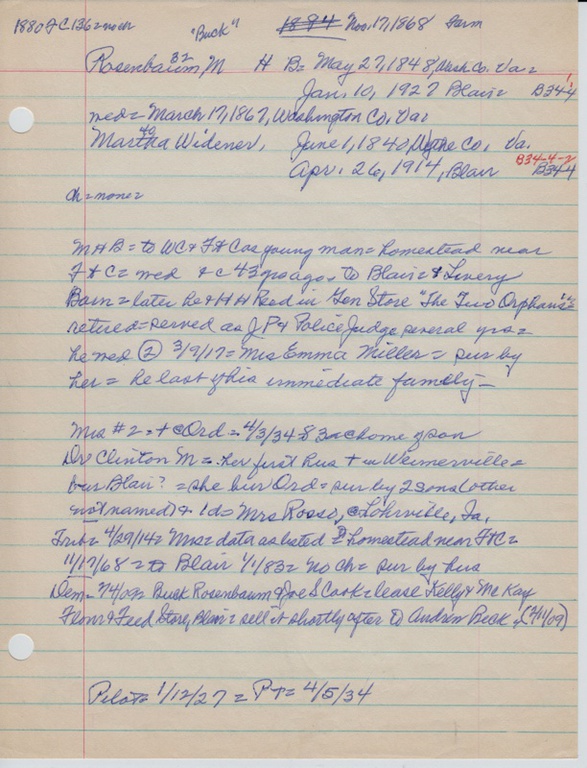 1880 Ft C 136 = no ch "Buck" 1884 Nov. 17, 1868 Farm
Rosenbaum, M H B= May 27, 1848, Wash. Co. Va=
32
Jan. 10, 1927 Blair= B34-4
med= March 17, 1867, Washington Co, Va=
40
Martha Widener, June 1, 1840, Wythe Co, Va.
B34-4-2
Apr. 26, 1914, Blair B34-4
ch= none=
M H B= to WC & Ft C as young man= homestead near
Ft C= med & c 43 yrs ago. To Blair= & Livery
Barn= later he & H H Reed in Gen Store "The Two Orphans"=
retired= served as J P & Police Judge several yrs=
he med ② 3/9/17= Mrs Emma Miller= sur by
her= he last of his immediate family—
Mrs #2= + @ Ord= 4/3/34 83 @ home of son
Dr Clinton M= her first hus + in Weimerville=
bur Blair? = she bur Ord= sur by 2 sons (other
not named) & 1d= Mrs Rosso, @ Lohrville, Ia.
Trib= 4/29/14= Mrs= data as listed = homestead near Ft C=
11/17/68= to Blair 1/1/83= no ch= sur by hus
Dem= 7/4/09= Buck Rosenbaum & Joe S Cook= lease Kelly & McKay
Flour & Feed Store, Blair= sell it shortly after to Andrew Beck= (2/11/09)
Pilot= 1/12/27= PT= 4/5/34